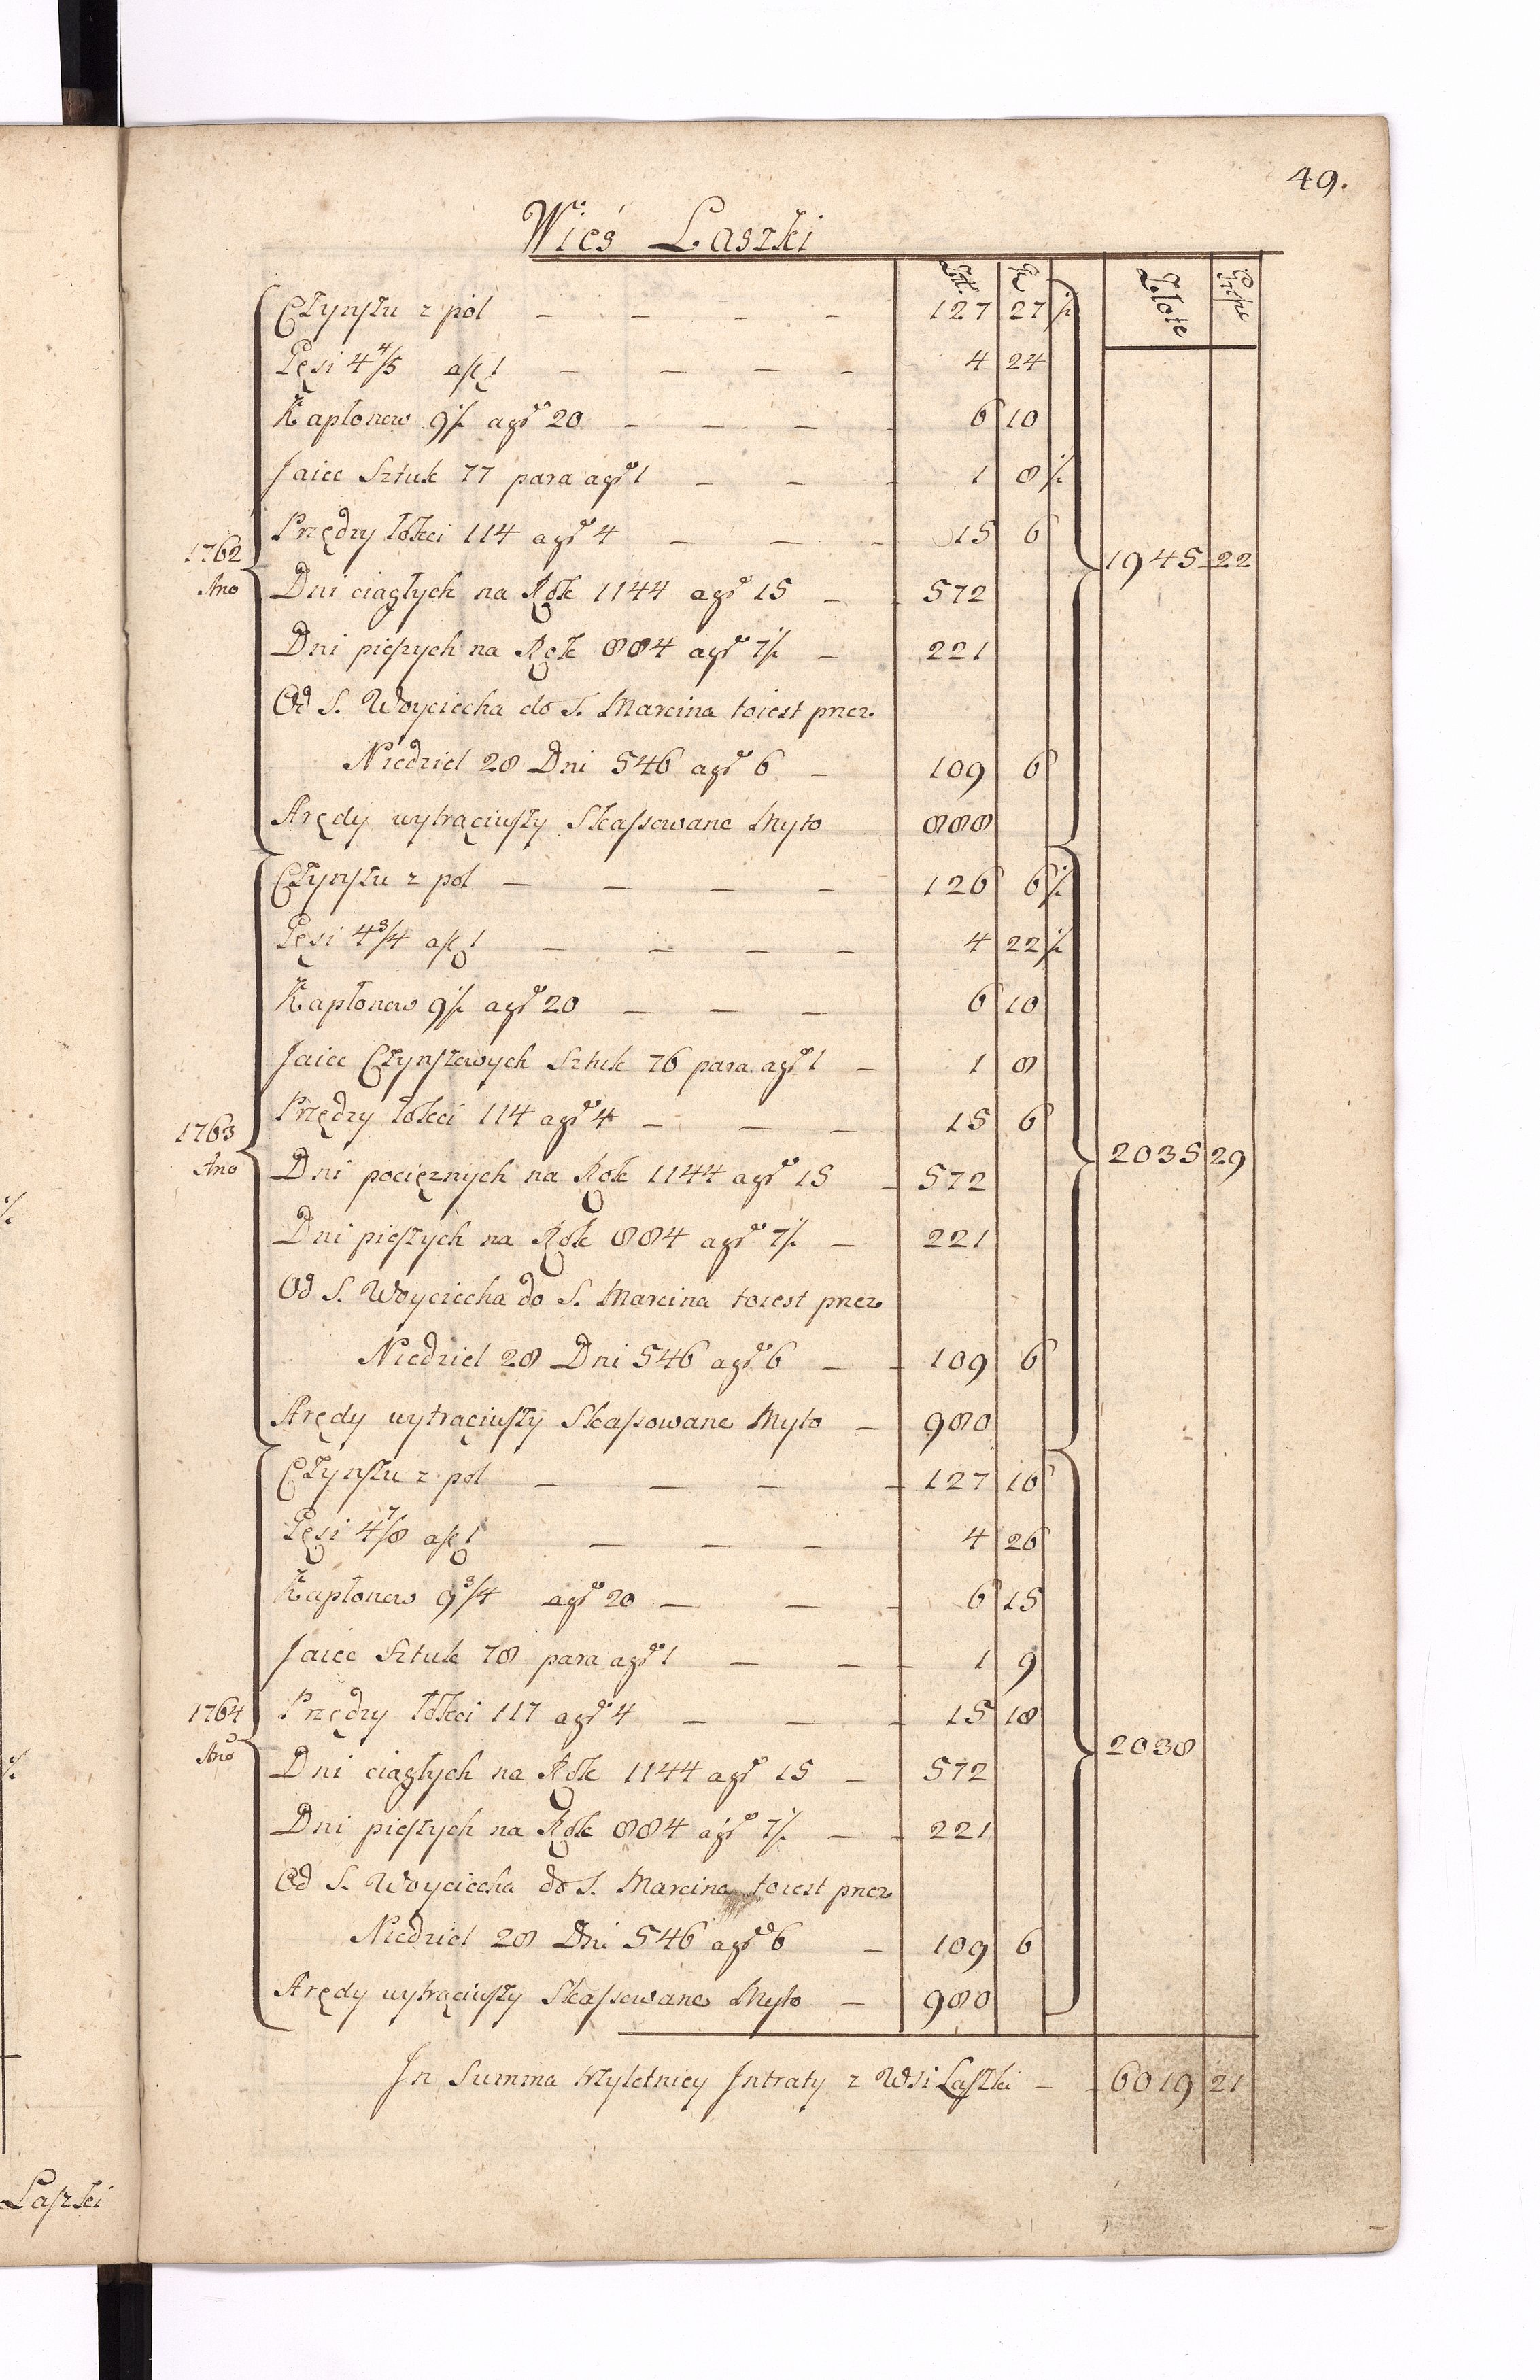 49.
Wieś Laszki
Zło. Gr. Złote Grosze
Czynszu z pol — — — — 127 27 ½
Gęsi 4 4/5 a szt 1 — — — — 4 24
Kapłonow 9½ a gr 20 — — — 6 10
Jaiec Sztuk 77 para a gr 1 — — 1 8 ½
Przędzy łokci 114 a gr 4 — — — 15 6
1762 1945 22
Ano
Dni ciągłych na Rok 1144 a gr 15 — 572
Dni pieszych na Rok 884 a gr 7½ — 221
Od S. Woyciecha do S. Marcina toiest przez
Niedziel 28 Dni 546 a gr 6 — 109 6
Arędy wytrąciwszy Skassowane Myto 888
Czynszu z pol — — — — 126 6 ½
Gęsi 4 3/4 a szt 1 — — — — 4 22 ½
Kapłonow 9½ a gr 20 — — — 6 10
Jaiec Czynszowych Sztuk 76 para a gr 1 — 1 8
Przędzy łokci 114 a gr 4 — — — 15 6
1763 2035 29
Ano
Dni pociężnych na Rok 1144 a gr 15 — 572
Dni pieszych na Rok 884 a gr 7½ — 221
Od S. Woyciecha do S. Marcina toiest przez
Niedziel 28 Dni 546 a gr 6 — 109 6
Arędy wytrąciwszy Skassowane Myto — 980
Czynszu z pol — — — — 127 16
Gęsi 4 7/8 a szt 1 — — — 4 26
Kapłonow 9 3/4 a gr 20 — — — 6 15
Jaiec Sztuk 78 para a gr 1 — — 1 9
Przędzy łokci 117 a gr 4 — — — 15 18
1764 2038
Ano
Dni ciągłych na Rok 1144 a gr 15 — 572
Dni pieszych na Rok 884 a gr 7½ — 221
Od S. Woyciecha do S. Marcina toiest przez
Niedziel 28 Dni 546 a gr 6 — 109 6
Arędy wytrąciwszy Skassowane Myto — 980
Jn Summa trzyletniey Jntraty z Wsi Laszki — 6019 21
Laszki